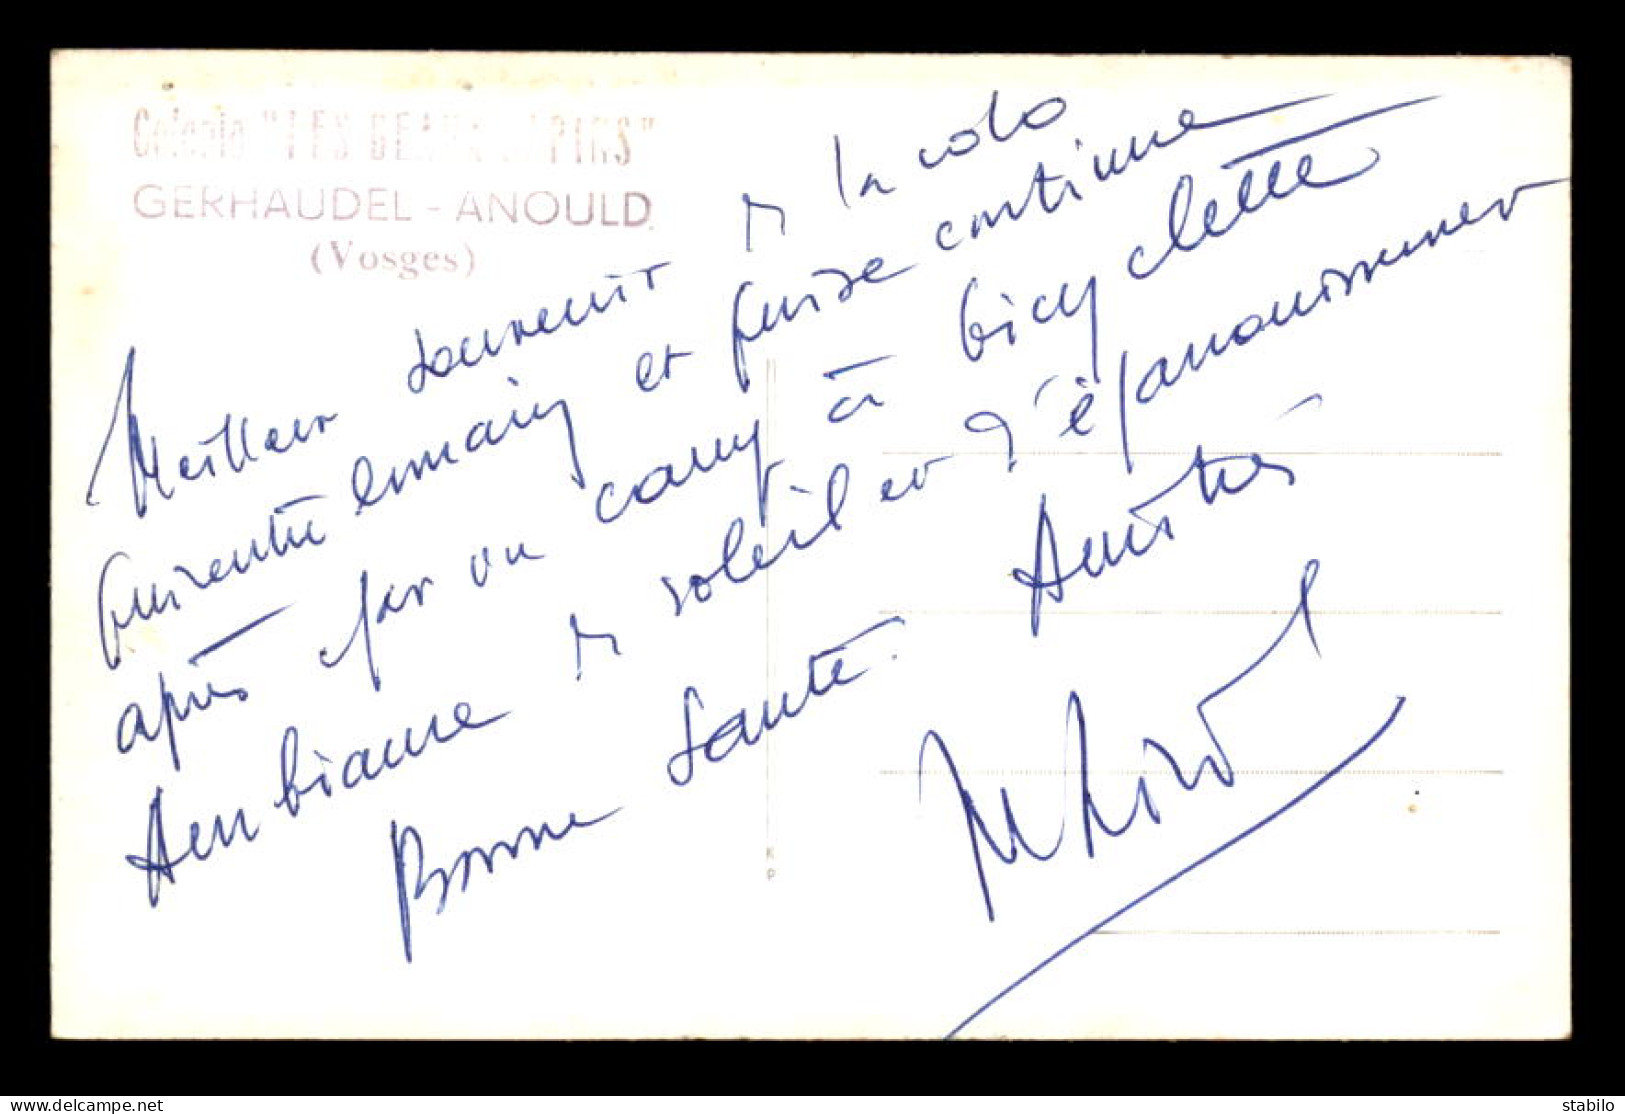 Colonie "LES BEAUX SAPINS"
GERHAUDEL - ANOULD
(Vosges)
Meilleur souvenir de la colo
qui rentre demain et qui se continue
après par un camp à bicyclette
Ambiance de soleil et d'épanouissement
Bonne Santé. Amitiés
K
P
stabilo